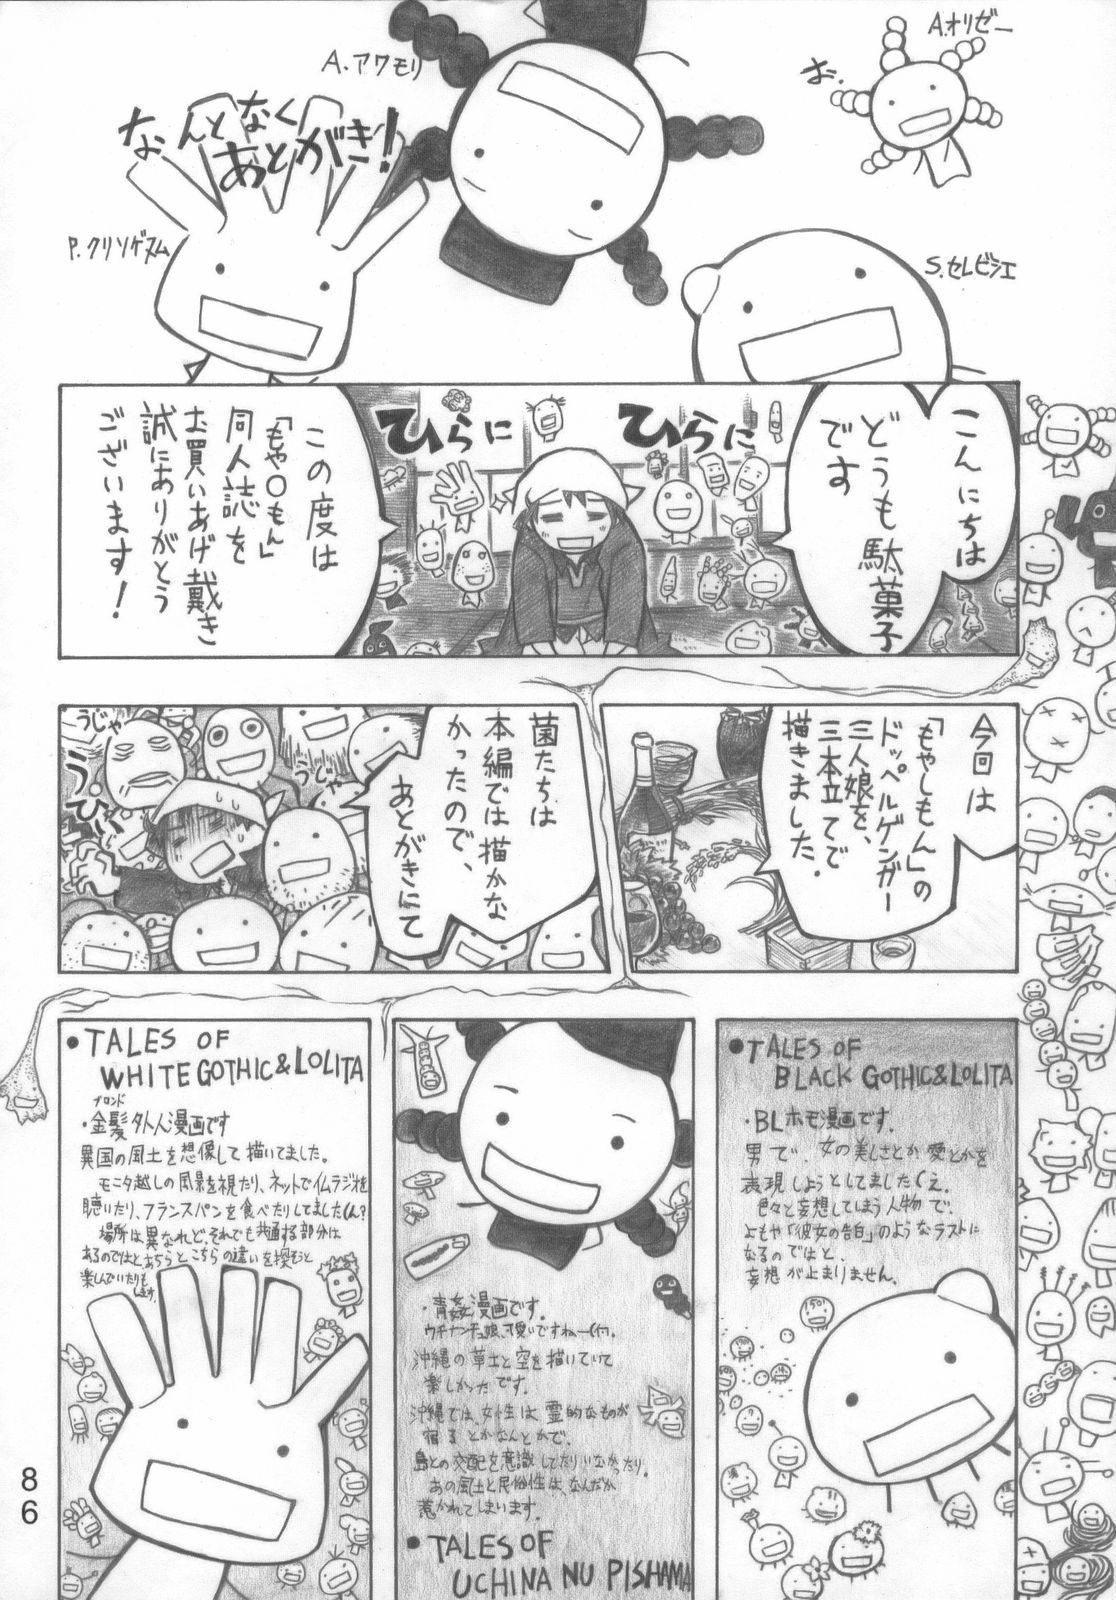 A.アワモリ
A.オリゼー
お.
なんとなく
あとがき!
P.クリソゲヌム
S.セレビシエ
こんにちは
どうも駄菓子
です
ひらに
ひらに
この度は
「もや○もん」
同人誌を
お買いあげ戴き
誠にありがとう
ございます!
今回は
「もやしもん」の
ドッペルゲンガー
三人娘を、
三本立てで
描きました.
菌たちは
本編では描かな
かったので、
あとがきにて
うじゃ
うじゃ
うひぃ
•TALES OF
BLACK GOTHIC&LOLITA
・BLホモ漫画です.
男で、女の美しさとか愛とかを
表現しようとしてましたくえ.
色々と妄想してしまう人物で.
よもや「彼女の告白」のようなラストに
なるのではと、
妄想が止まりません.
1501
・青姦漫画です.
ウチナンチュ娘、可愛いですねー
沖縄の草土と空を描いていて
楽しかったです.
沖縄では、女性は霊的なものが
宿るとかなんとかで、
島との交配を意識してたりいなかったり.
あの風土と民俗性は、なんだか
惹かれてしまいます.
•TALES OF
UCHINA NU PISHAMA
•TALES OF
WHITE GOTHIC&LOLITA
ブロンド
・金髪外人漫画です
異国の風土を想像して描いてました.
モニタ越しの風景を視たり、ネットでイムラジオを
聴いたり、フランスパンを食べたりしてましたくん?
場所は異なれど、それでも共通する部分は
あるのではと、あちらとこちらの違いを探そうと
楽しんでいたりも
します.
86